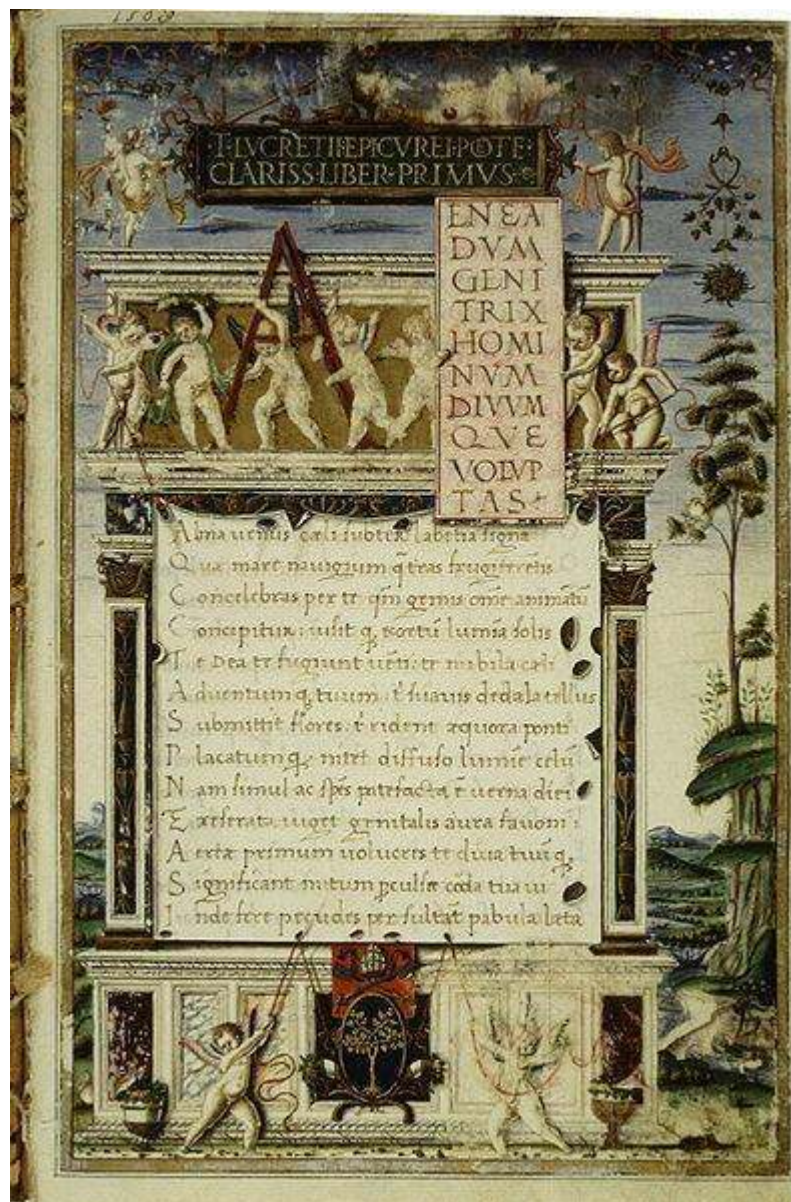 1503
T·LVCRETII·EPICVREI·POETE·
CLARISS·LIBER·PRIMVS·
A
ENEA
DVM
GENI
TRIX
HOMI
NVM
DIVVM
QVE
VOLVP
TAS
Alma uenus cæli subter labentia signa
Quæ mare nauigerum q̄ terras frugiferētis
Concelebras per te qm̄ genus om̄e animātū
Concipitur: uisit q; exortū lumīa solis
Te Dea te fugiunt uēti: te nubila cæli
Aduentum q; tuum: t̄ suauis dedala tellus
Submittit flores: t̄ rident æquora ponti
Placatum q; nitet diffuso lumīe celū
Nam simul ac sp̄es patefacta ē uerna diei
Et reserata uiget genitalis aura fauoni:
Aeriæ primum uolucris te diua tuū q;
Significant initum p̄culsæ corda tua ui
Inde feræ pecudes per sultāt pabula læta